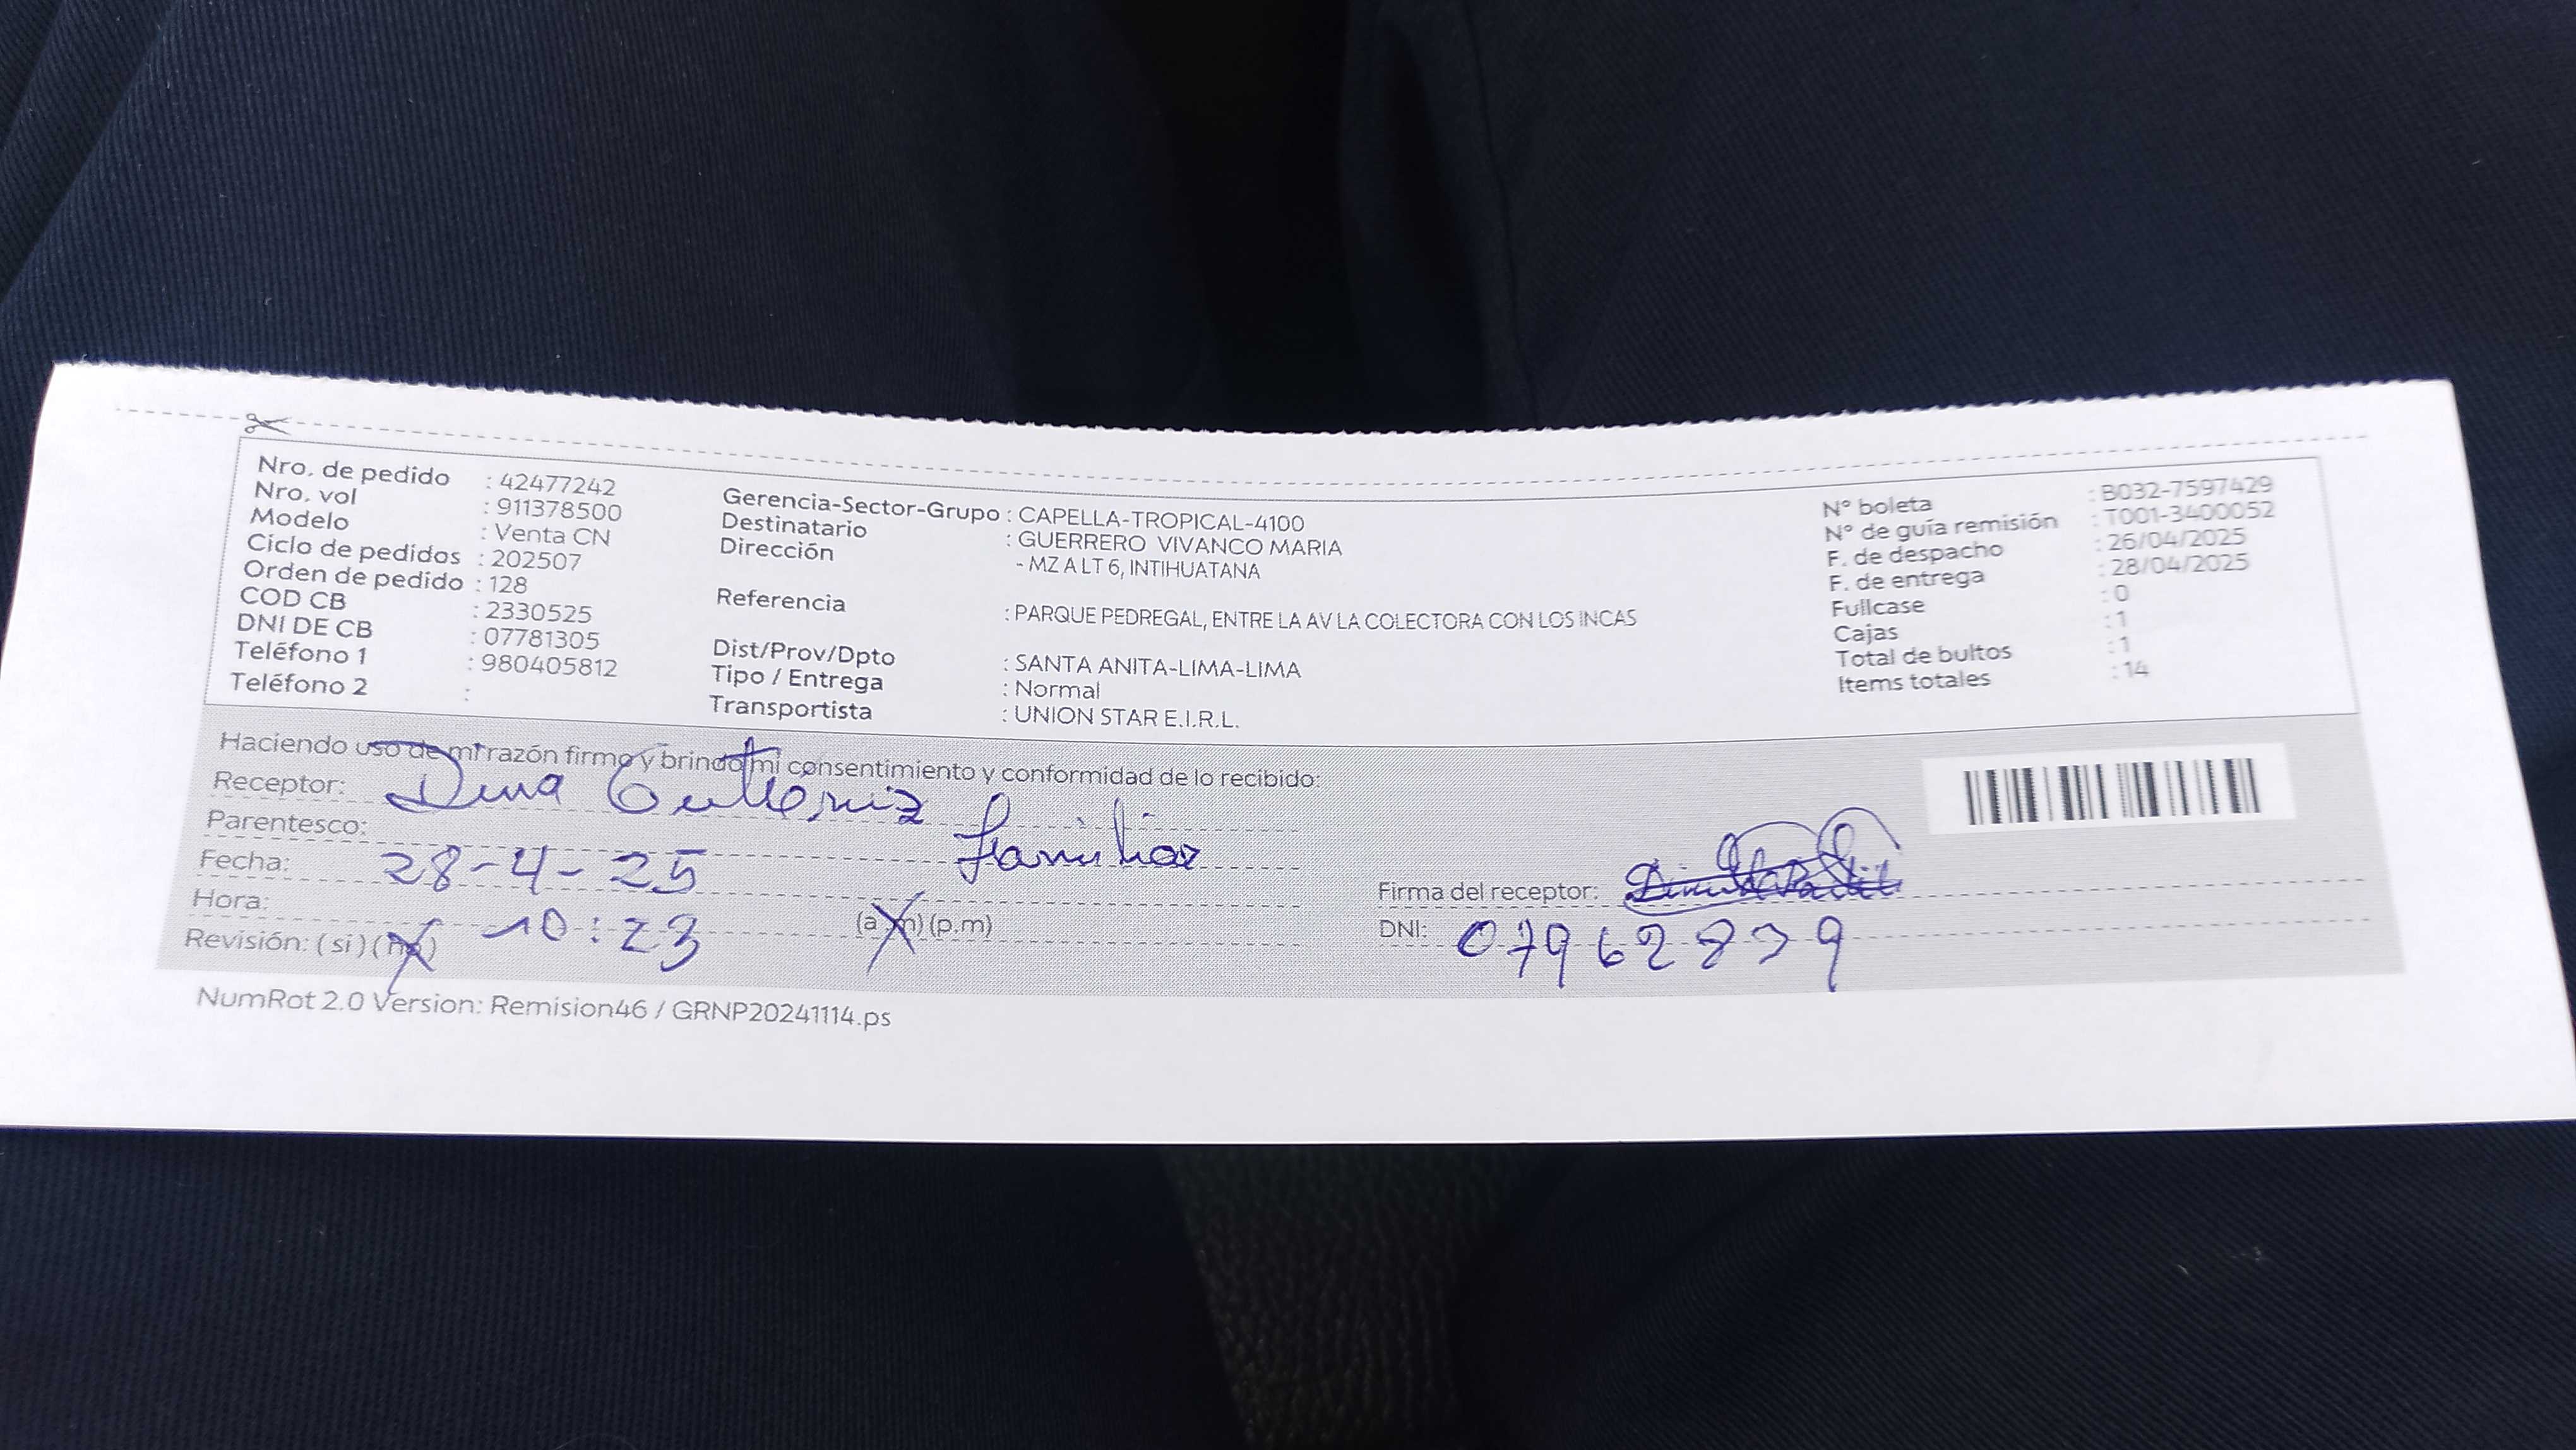 Nro. de pedido : 42477242
Nro. vol : 911378500
Modelo : Venta CN
Ciclo de pedidos : 202507
Orden de pedido : 128
COD CB : 2330525
DNI DE CB : 07781305
Teléfono 1 : 980405812
Teléfono 2 :
Gerencia-Sector-Grupo : CAPELLA-TROPICAL-4100
Destinatario : GUERRERO VIVANCO MARIA
Dirección - MZ A LT 6, INTIHUATANA
Referencia : PARQUE PEDREGAL, ENTRE LA AV LA COLECTORA CON LOS INCAS
Dist/Prov/Dpto : SANTA ANITA-LIMA-LIMA
Tipo / Entrega : Normal
Transportista : UNION STAR E.I.R.L.
N° boleta : B032-7597429
N° de guía remisión : T001-3400052
F. de despacho : 26/04/2025
F. de entrega : 28/04/2025
Fullcase : 0
Cajas : 1
Total de bultos : 1
Items totales : 14
Haciendo uso de mi razón firmo y brindo mi consentimiento y conformidad de lo recibido:
Receptor: Dina Gutierrez
Parentesco: familiar
Fecha: 28-4-25
Hora: 10:23 (a.m) (p.m)
Revisión: (si) (no)
Firma del receptor:
DNI: 07962839
NumRot 2.0 Version: Remision46 / GRNP20241114.ps